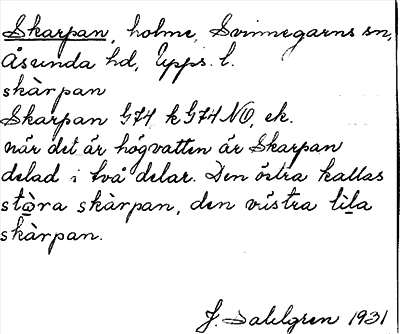 Skarpan, holme, Svinnegarns sn,
Åsunda hd, Upps. l.
skàrpan
Skarpan G74, k G74 NO, ek.
när det är högvatten är Skarpan
delad i två delar. Den östra kallas
sto̲ra skàrpan, den västra li̲la
skàrpan.
J. Dahlgren 1931